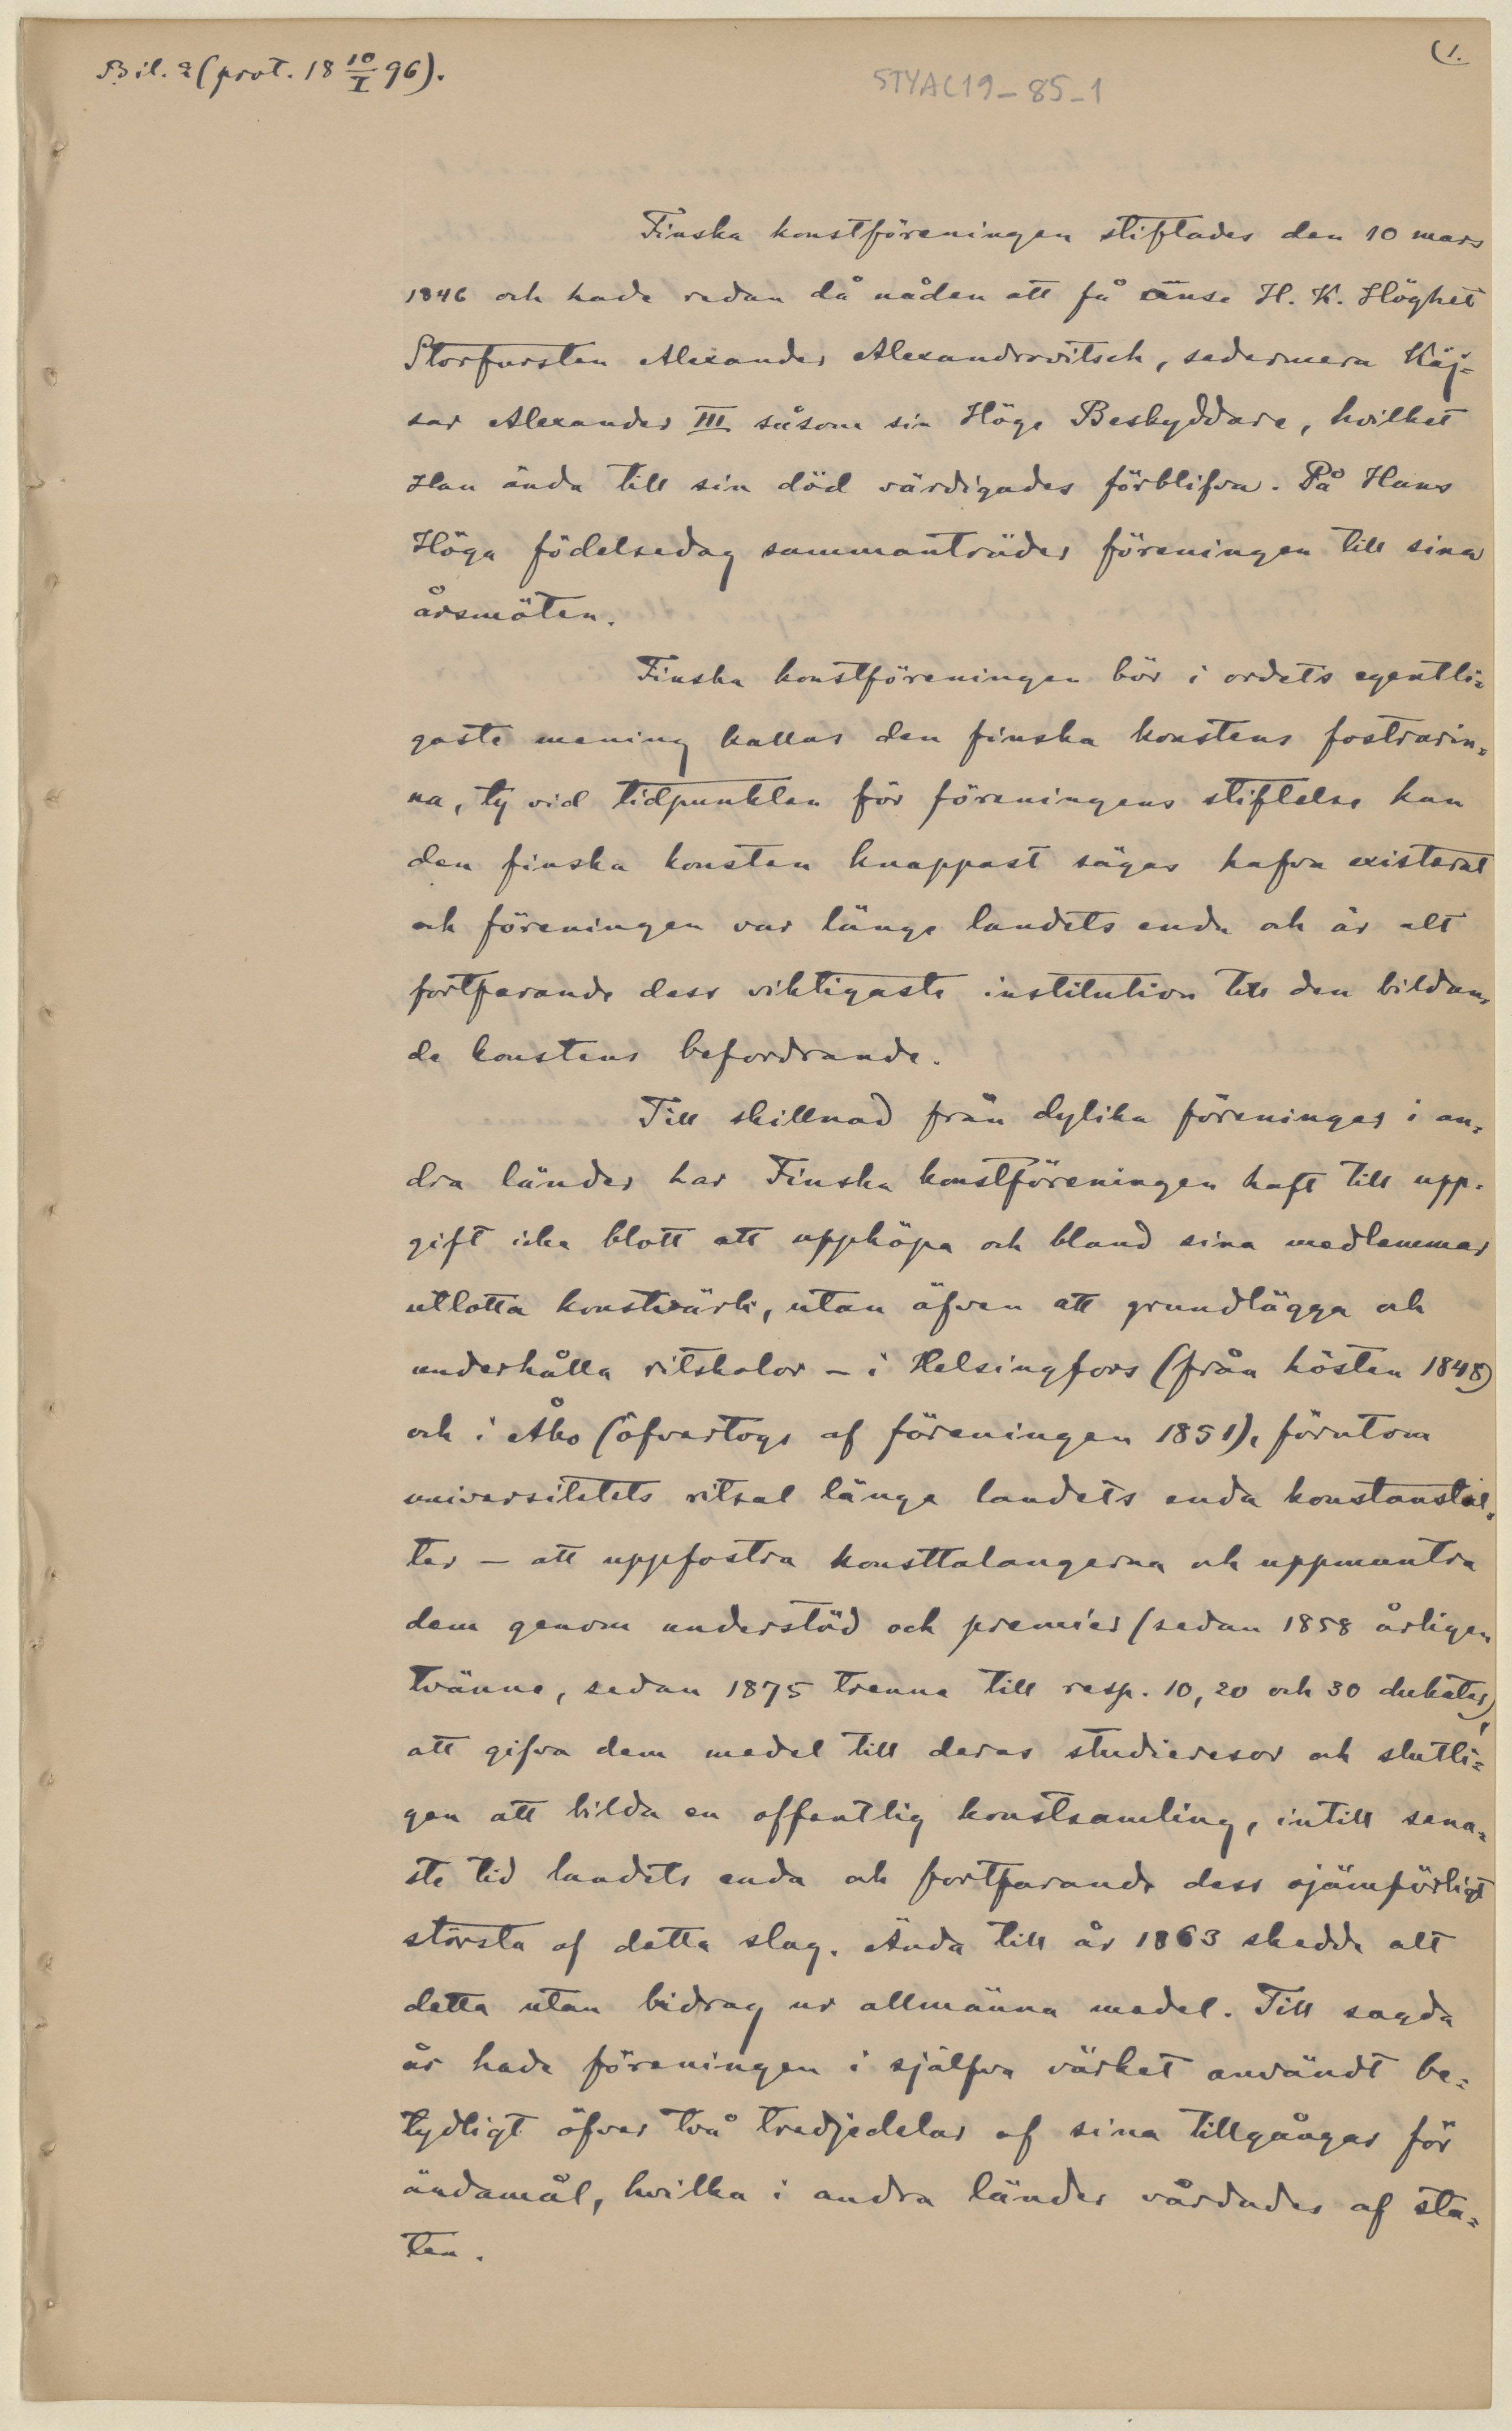 Bil. 2 (prot. 18 10/I 96).
(1.
STYAC19-85-1
Finska konstföreningen stiftades den 10 mars
1846 och hade redan då nåden att få anse H. K. Höghet
Storfursten Alexander Alexandrovitsch, sedermera Käj=
sar Alexander III såsom sin Höge Beskyddare, hvilket
Han ända till sin död värdigades förblifva. På Hans
Höga födelsedag sammanträder föreningen till sina
årsmöten.
Finska konstföreningen bör i ordets egentli=
gaste mening kallas den finska konstens fostrarin=
na, ty vid tidpunkten för föreningens stiftelse kan
den finska konsten knappast sägas hafva existerat
och föreningen var länge landets enda och är allt
fortfarande dess viktigaste institution till den bildan=
de konstens befordrande.
Till skillnad från dylika föreningar i an=
dra länder har Finska konstföreningen haft till upp=
gift icke blott att uppköpa och bland sina medlemmar
utlotta konstvärk, utan äfven att grundlägga och
underhålla ritskolor – i Helsingfors (från hösten 1848)
och i Åbo (öfvertogs af föreningen 1851), förutom
universitetets ritsal länge landets enda konstanstal=
ter – att uppfostra konsttalangerna och uppmuntra
dem genom understöd och premier (sedan 1858 årligen
tvänne, sedan 1875 trenne till resp. 10, 20 och 30 dukater),
att gifva dem medel till deras studieresor och slutli=
gen att bilda en offentlig konstsamling, intill sena=
ste tid landets enda och fortfarande dess ojämförligt
största af detta slag. Ända till år 1863 skedde allt
detta utan bidrag ur allmänna medel. Till sagda
år hade föreningen i själfva värket användt be=
tydligt öfver två tredjedelar af sina tillgångar för
ändamål, hvilka i andra länder vårdades af sta=
ten.